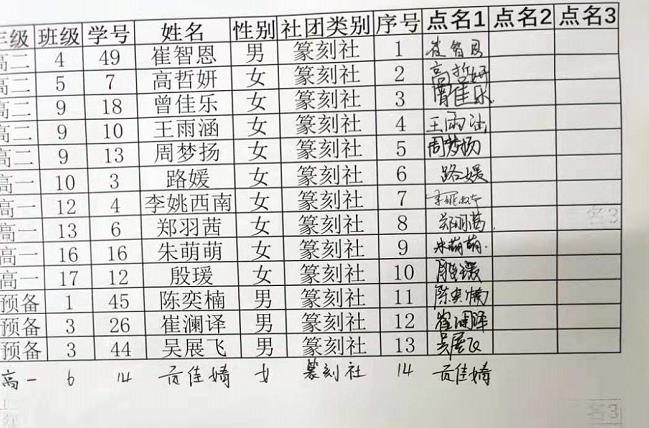 年级 班级 学号 姓名 性别 社团类别 序号 点名1 点名2 点名3
高二 4 49 崔智恩 男 篆刻社 1 崔智恩
高二 5 7 高哲妍 女 篆刻社 2 高哲妍
高二 9 18 曾佳乐 女 篆刻社 3 曾佳乐
高二 9 10 王雨涵 女 篆刻社 4 王雨涵
高二 9 13 周梦扬 女 篆刻社 5 周梦扬
高一 10 3 路媛 女 篆刻社 6 路媛
高一 12 4 李姚西南 女 篆刻社 7
高一 13 6 郑羽茜 女 篆刻社 8 郑羽茜
高一 16 16 朱萌萌 女 篆刻社 9 朱萌萌
高一 17 12 殷瑗 女 篆刻社 10 殷瑗
预备 1 45 陈奕楠 男 篆刻社 11 陈奕楠
预备 3 26 崔澜译 男 篆刻社 12 崔澜译
预备 3 44 吴展飞 男 篆刻社 13 吴展飞
高一 6 14 贡佳婍 女 篆刻社 14 贡佳婍
名3
名3